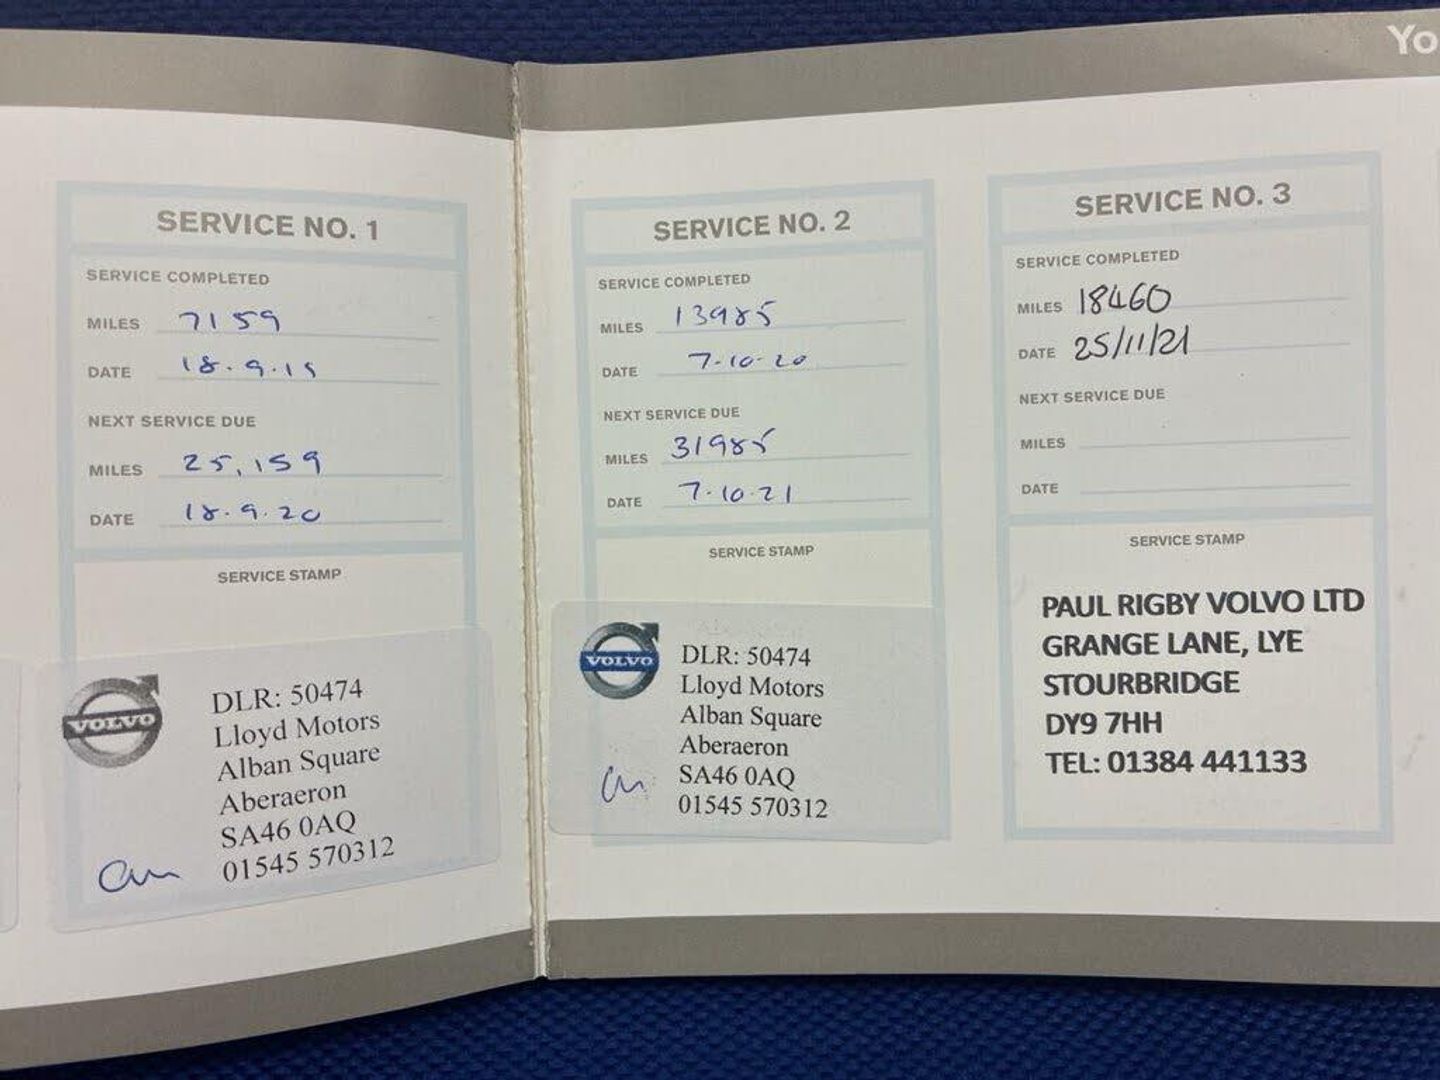 Yo
SERVICE NO. 1
SERVICE COMPLETED
MILES 7159
DATE 18.9.19
NEXT SERVICE DUE
MILES 25,159
DATE 18.9.20
SERVICE STAMP
VOLVO
DLR: 50474
Lloyd Motors
Alban Square
Aberaeron
SA46 0AQ
01545 570312
SERVICE NO. 2
SERVICE COMPLETED
MILES 13985
DATE 7.10.20
NEXT SERVICE DUE
MILES 31985
DATE 7.10.21
SERVICE STAMP
VOLVO
DLR: 50474
Lloyd Motors
Alban Square
Aberaeron
SA46 0AQ
01545 570312
SERVICE NO. 3
SERVICE COMPLETED
MILES 18460
DATE 25/11/21
NEXT SERVICE DUE
MILES
DATE
SERVICE STAMP
PAUL RIGBY VOLVO LTD
GRANGE LANE, LYE
STOURBRIDGE
DY9 7HH
TEL: 01384 441133